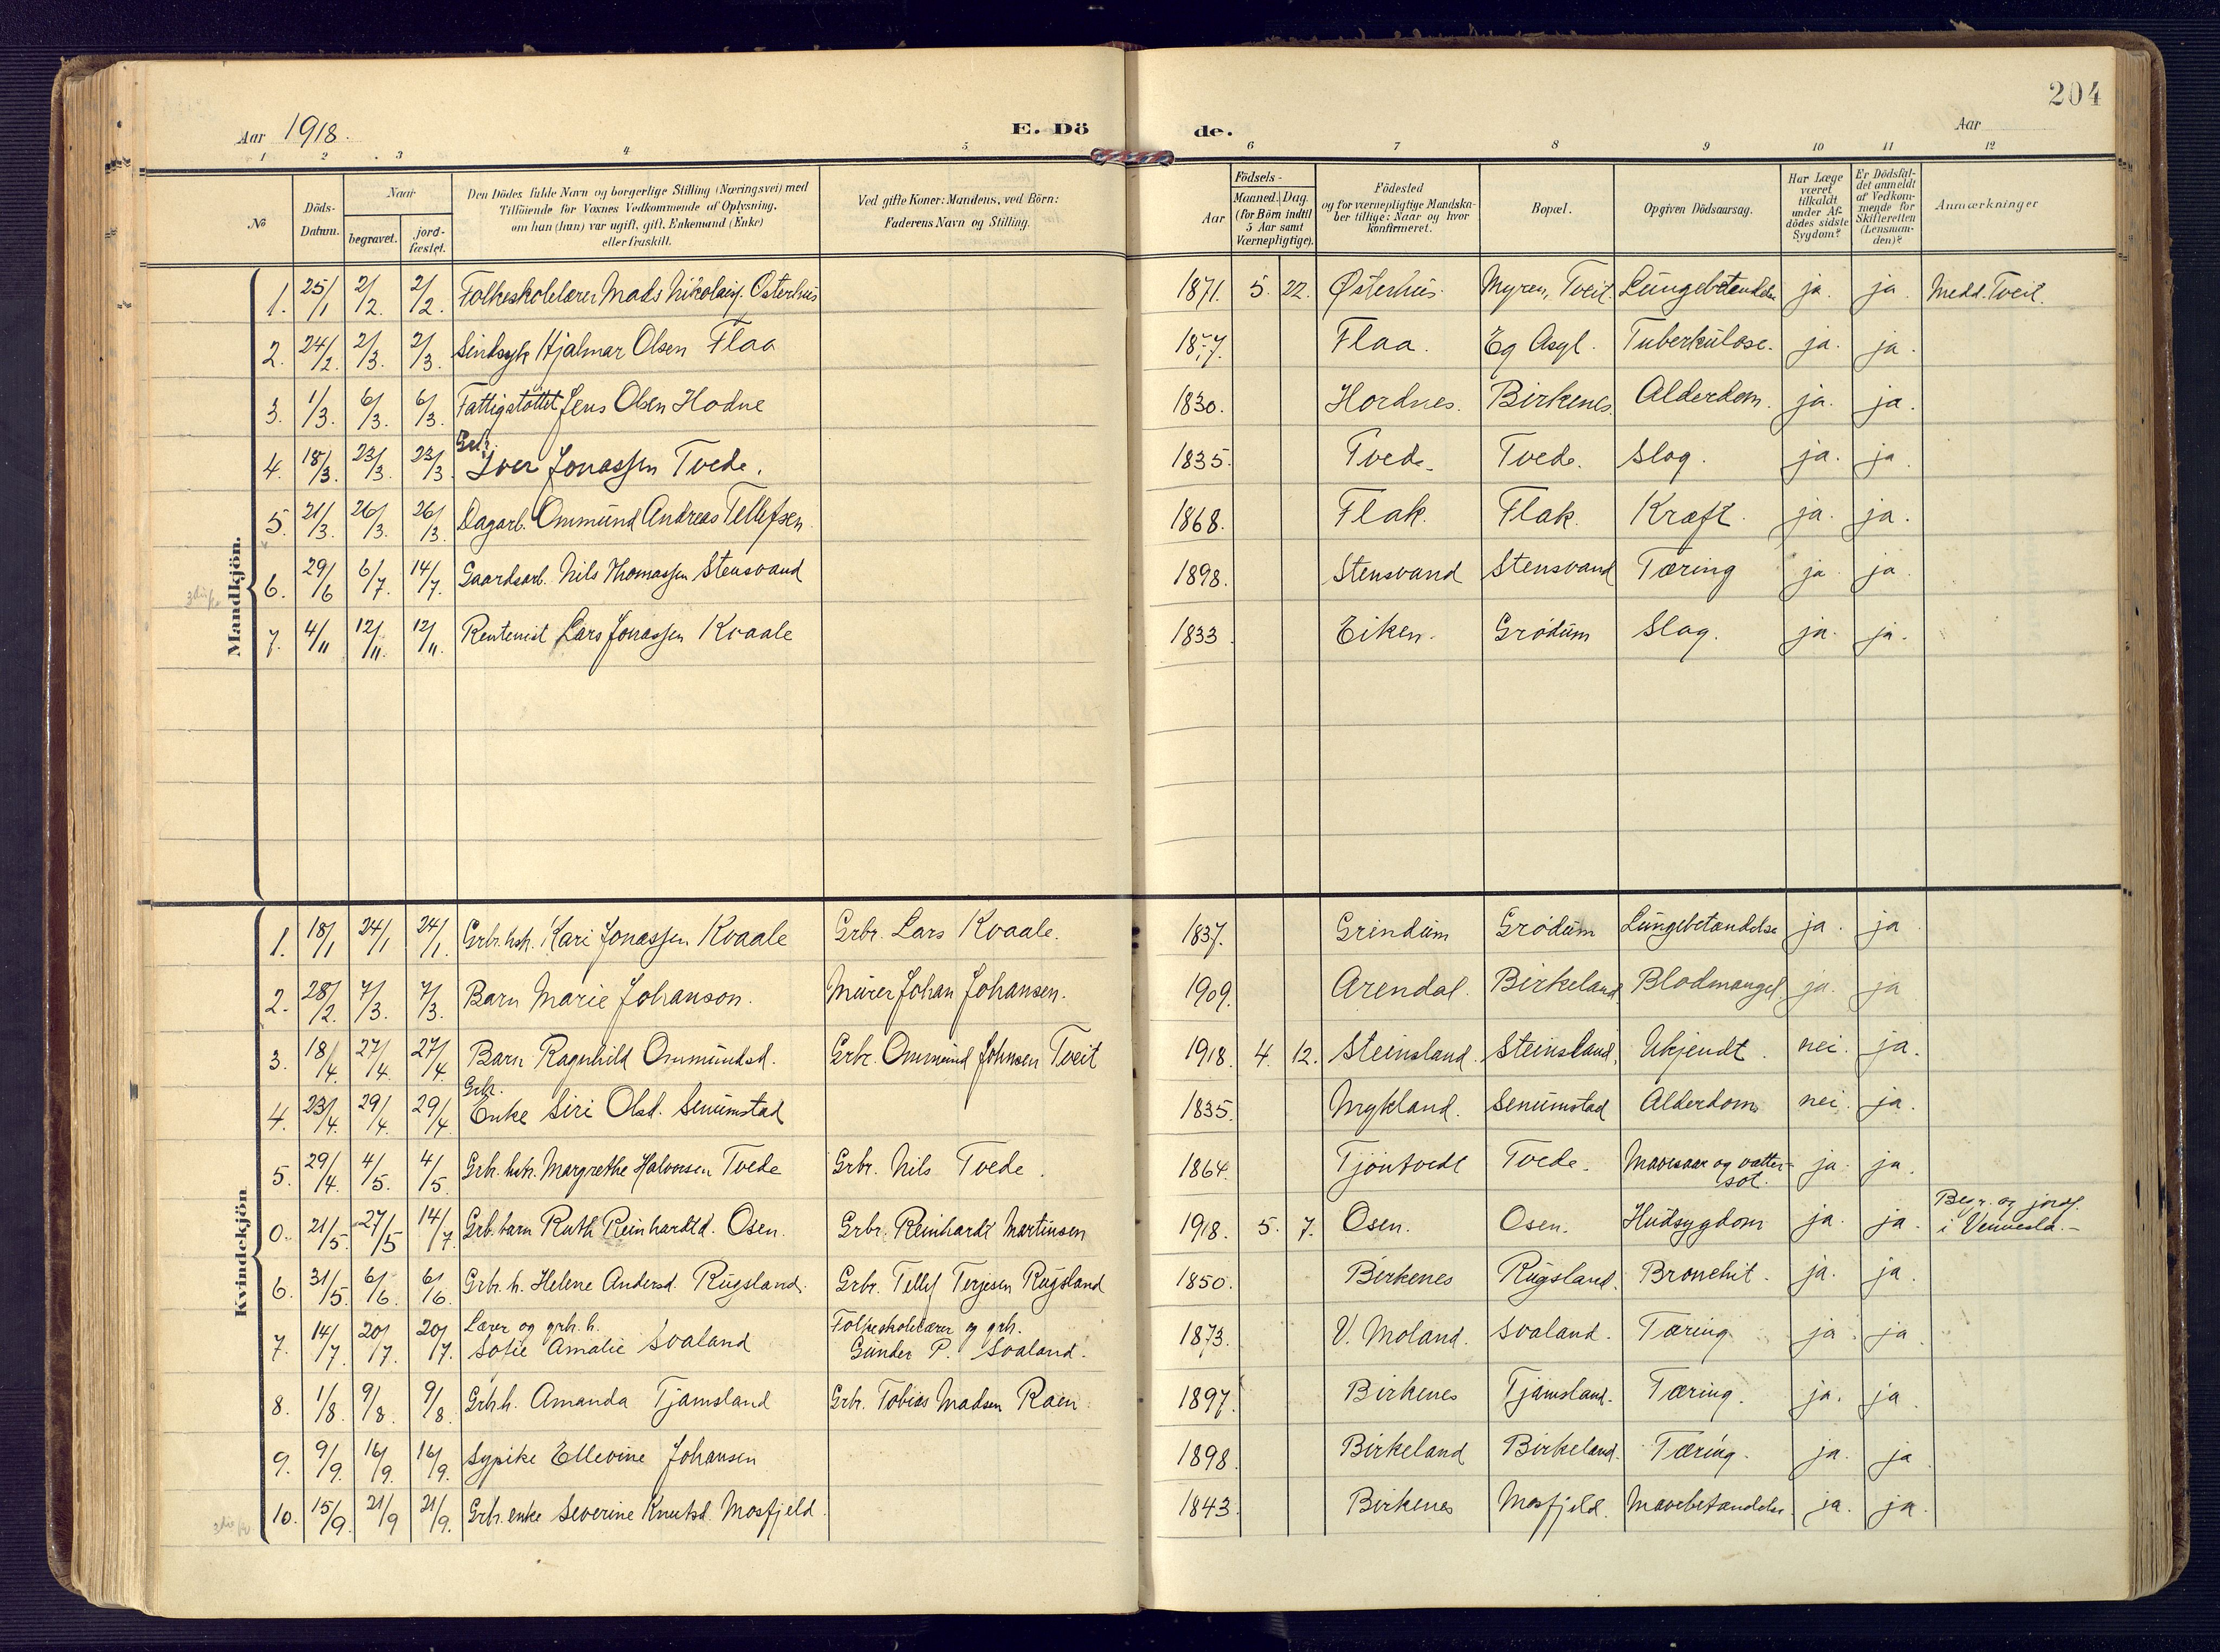 204
Aar 1918.
E. Dö de.
Aar
1 2 3 4 5 6 7 8 9 10 11 12
No
Döds-Datum.
Naar
begravet.
jord-fæstet.
Den Dödes fulde Navn og borgerlige Stilling (Næringsvei) med
Tilföiende for Voxnes Vedkommende af Oplysning,
om han (hun) var ugift, gift, Enkemand (Enke)
eller fraskilt.
Ved gifte Koner: Mandens, ved Börn:
Faderens Navn og Stilling.
Födsels-
Aar
Maaned. Dag.
(for Börn indtil
5 Aar samt
Værnepligtige).
Födested
og for værnepligtige Mandska-
ber tillige: Naar og hvor
konfirmeret.
Bopæl.
Opgiven Dödsaarsag.
Har Læge
været
tilkaldt
under Af-
dödes sidste
Sygdom?
Er Dödsfal-
det anmeldt
af Vedkom-
mende for
Skifteretten
(Lensman-
den)?
Anmærkninger
Mandkjön.
1. 25/1 2/2. 2/2. Folkeskolelærer Mads Nikolais. Osterhus 1871. 5. 22. Østerhus. Myren, Tveit. Lungebetændelse ja. ja. Medd. Tveit.
2. 24/2. 2/3. 2/3. Sindsyk Hjalmar Olsen Flaa Flaa. Eg Asyl. Tuberkulose. ja. ja.
3. 1/3. 6/3. 6/3. Fattigstöttet Jens Olsen Hodne 1830. Hordnes. Birkenes. Alderdom. ja. ja.
4. 18/3. 23/3. 23/3. Grbr. Iver Jonassen Tvede. 1835. Tvede. Tvede. Slag. ja. ja.
5. 21/3. 26/3. 26/3. Dagarb. Ommund Andreas Tellefsen. 1868. Flak. Flak. Kræft. ja. ja.
6. 29/6 6/7. 14/7. Gaardsarb. Nils Thomassen Stensvand 1898. Stensvand Stensvand Tæring ja ja.
7. 4/11 12/11. 12/11. Rentenist Lars Jonassen Kvaale 1833. Eiken. Grödum Slag. ja. ja.
Kvindekjön
1. 18/1 24/1 24/1. Grbr. hstr. Kari Jonassen Kvaale Grbr. Lars Kvaale. 1837. Grindum Grödum Lungebetændelse ja. ja
2. 28/2. 7/3. 7/3. Barn Marie Johanson. Murer Johan Johansen. 1909. Arendal. Birkeland Blodmangel. ja. ja
3. 18/4. 27/4. 27/4. Barn Ragnhild Ommundsd. Grbr. Ommund Johnsen Tveit 1918. 4. 12. Steinsland. Steinsland. Ukjendt. nei. ja.
4. 23/4. 29/4. 29/4. Grbr. Enke Siri Olsd. Senumstad 1835. Mykland. Senumstad Alderdom nei. ja.
5. 29/4. 4/5. 4/5. Grbr. hstr. Margrethe Halvorsen Tvede Grbr. Nils Tvede. 1864. Tjöntvedt Tvede. Mavesaar og vatter-
sot. ja. ja.
0. 21/5. 27/5 14/7. Grb. barn Ruth Reinhardtd. Osen. Grbr. Reinhardt Martinsen 1918. 5. 7. Osen. Osen. Hudsygdom ja. ja. Begr. og jordf.
i Vennesla.-
6. 31/5. 6/6. 6/6. Grbr. h. Helene Andersd. Rugsland. Grbr. Tellef Terjesen Rugsland 1850. Birkenes Rugsland. Bronchit. ja. ja.
7. 14/7. 20/7. 20/7. Lærer og grb. h.
Sofie Amalie Svaland Folkeskolelærer og grb.
Gunder P. Svaland. 1873. V. Moland. Svaland. Tæring. ja. ja.
8. 1/8. 9/8. 9/8. Grb. h. Amanda Tjamsland Grbr. Tobias Madsen Raen 1897. Birkenes Tjamsland. Tæring. ja. ja.
9. 9/9. 16/9. 16/9. Sypike Ellevine Johansen 1898. Birkeland Birkeland. Tæring. ja. ja
10. 15/9. 21/9 21/9. Grbr. enke Severine Knutsd. Mosfjeld. 1843. Birkenes Mosfjeld. Mavebetændelse. ja. ja.